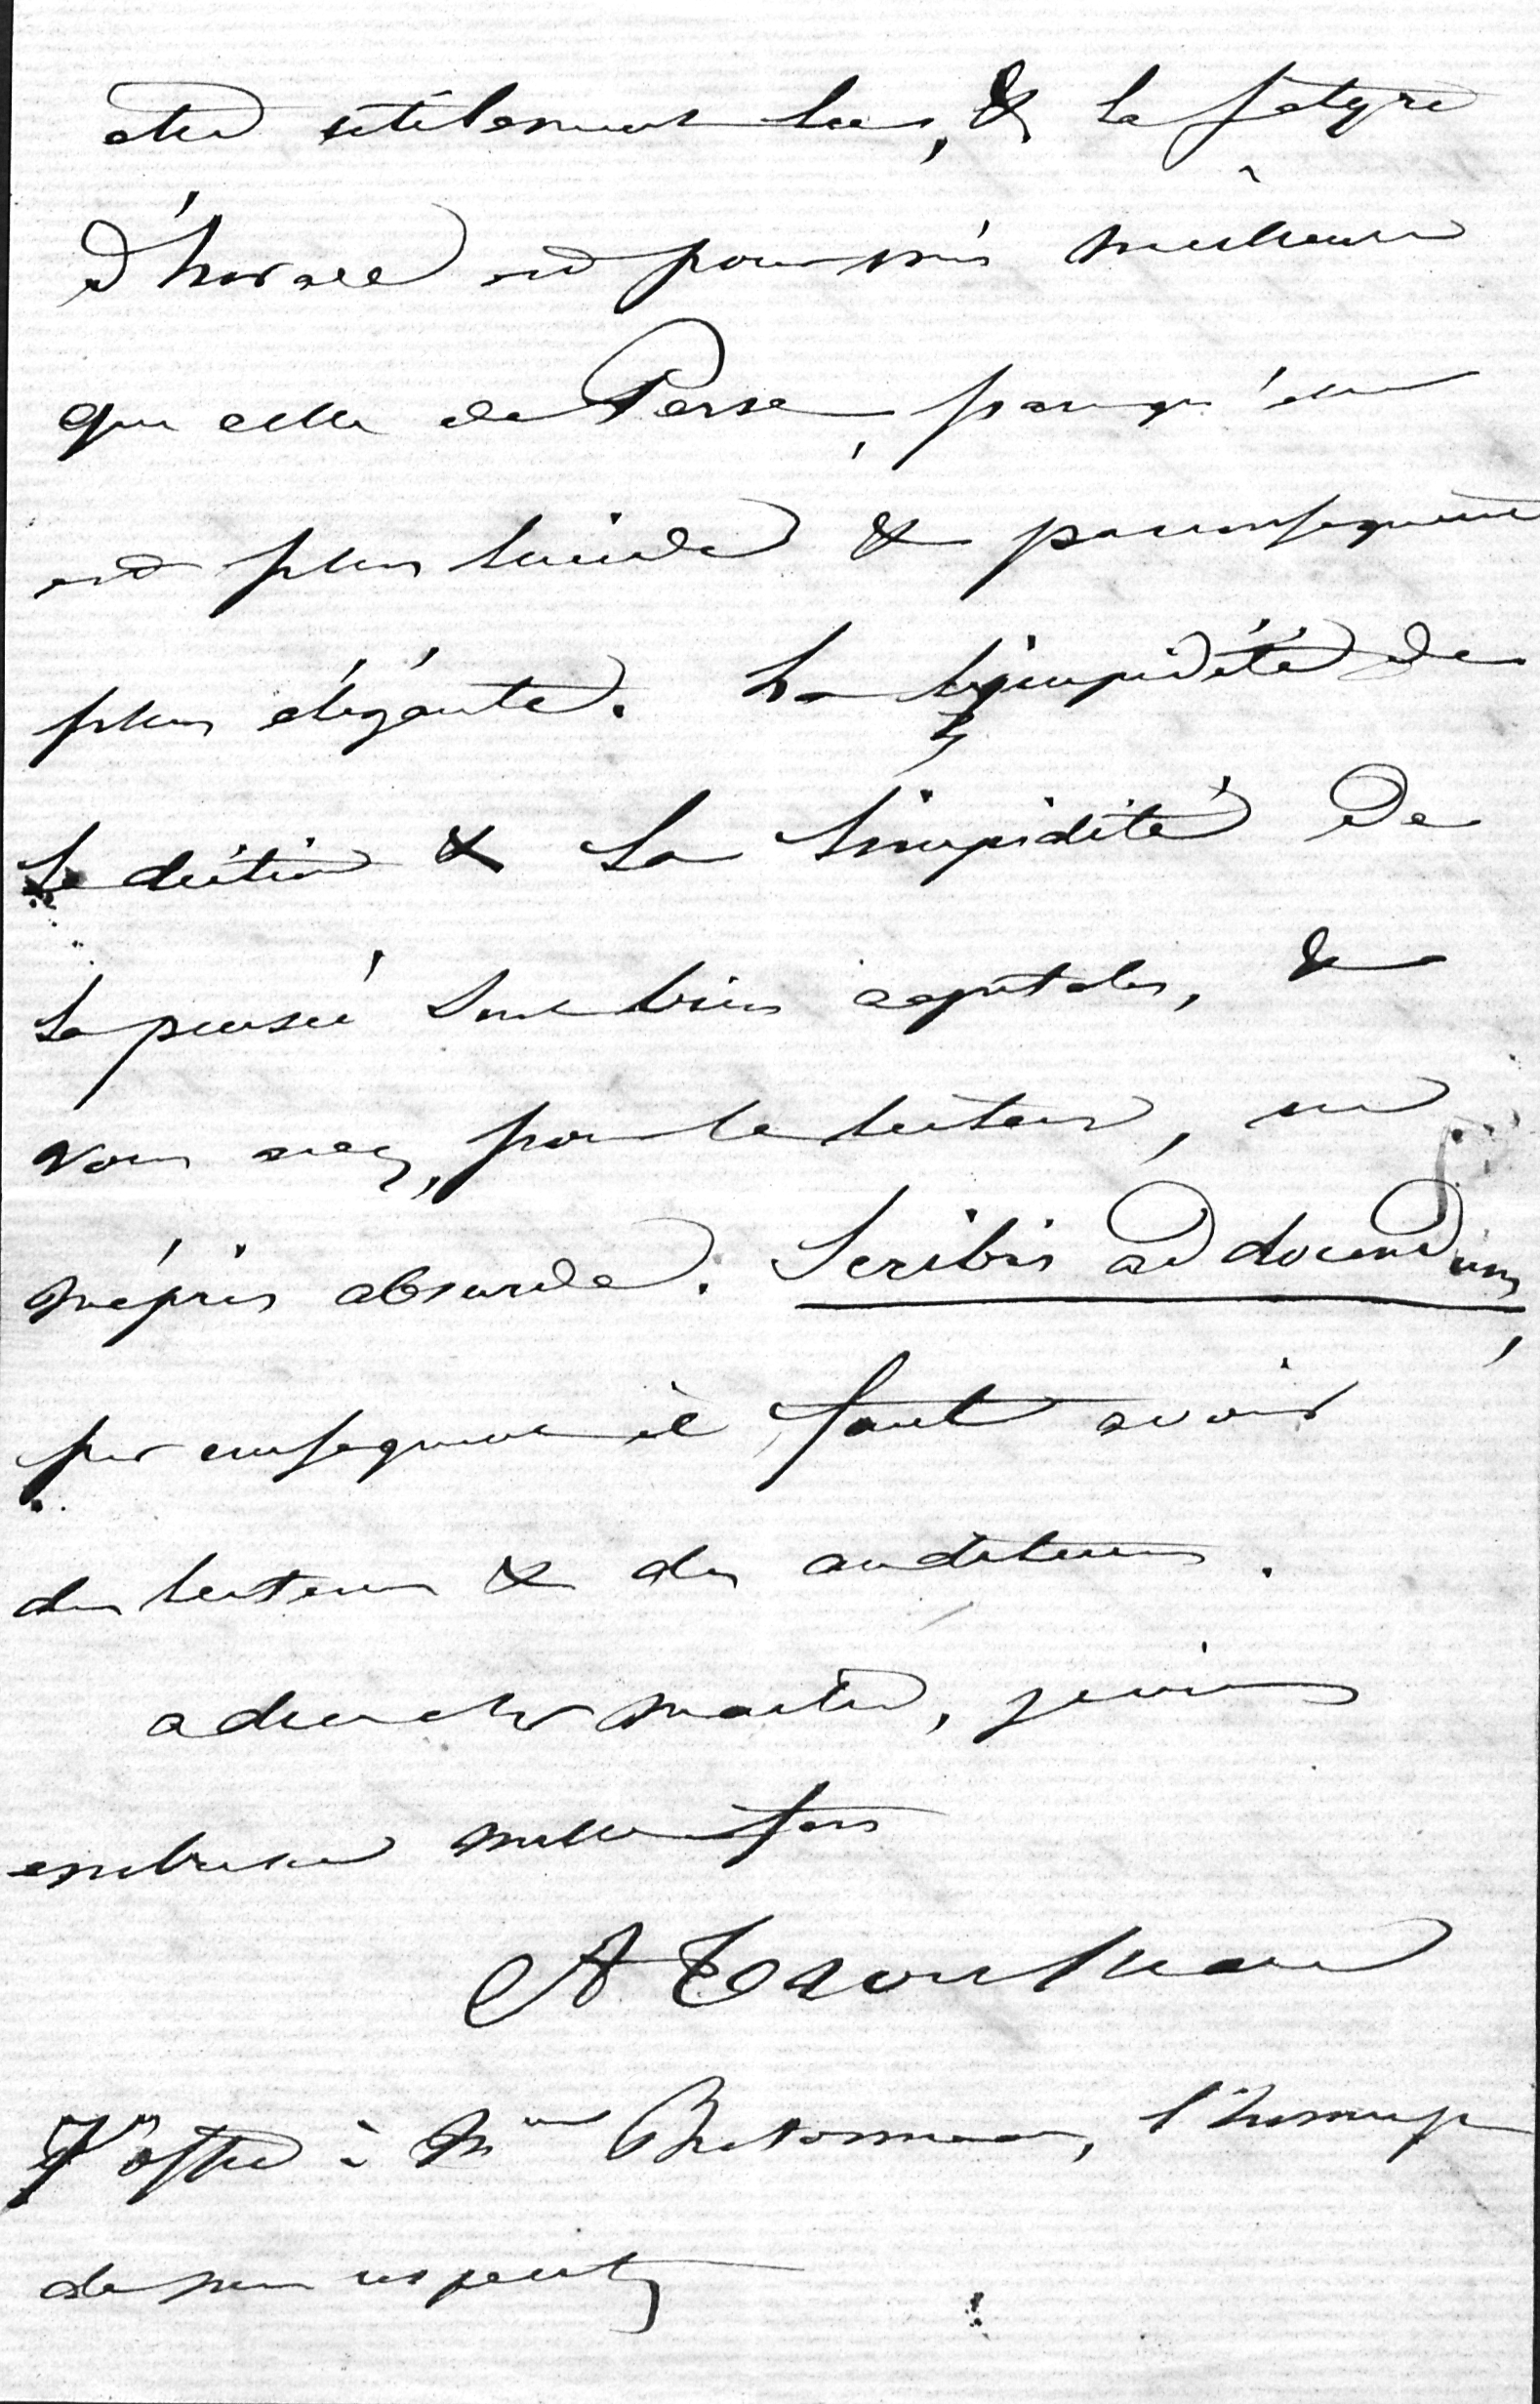 etre utilement lus, & la satyre
d'horace est pour moi meilleure
que celle de Perse, parcequ'elle
est plus lucide & par consequent
plus élégante. La limpidité de
la diction & la limpidité de
la pensée sont bien capitales, &
vous avez, pour le lecteur, un
mépris absurde. Scribis ad docendum,
par consequent il faut avoir
des lecteurs & des auditeurs.
adieu cher maitre, je vous
embrasse mille fois
A Trousseau
J'offre à Mme Bretonneau, l'hommage
de mon respect